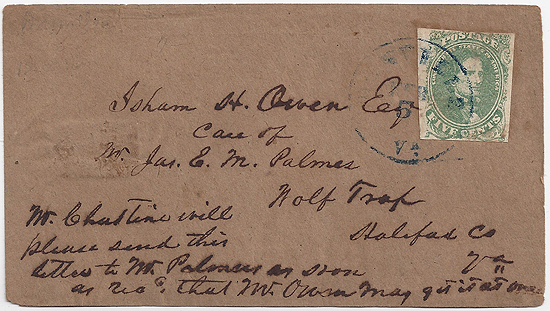 POSTAGE
FIVE CENTS
5
VA
Isham H. Owen Esq
Care of
Mr. Jas. E. M. Palmes
Wolf Trap
Halifax Co
Va
Mr. Chastine will
please send this
letter to Mr. Palmers as soon
as rec^d. that Mr. Owen may get it at once